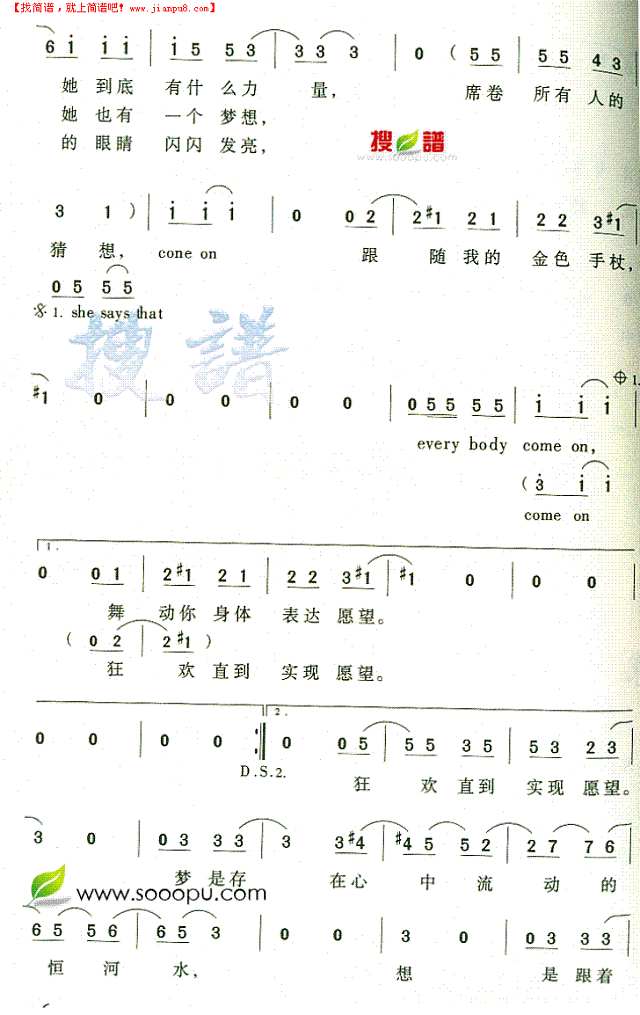 【找简谱，就上简谱吧！www.jianpu8.com】
6 i i i | i 5 5 3 | 3 3 3 | 0 ( 5 5 | 5 5 4 3
她到底 有什么力 量， 席卷 所有 人的
她也有 一个梦想，
的眼睛 闪闪发亮，
搜譜
www.sooopu.com
3 1 ) | i i i | 0 0 2 | 2 #1 2 1 | 2 2 3 #1
猜 想， cone on 跟 随我的 金色手杖，
0 5 5 5
1. she says that
搜譜
#1 0 | 0 0 | 0 0 | 0 5 5 5 5 | i i i | 1.
every body come on,
( 3 i i
come on
1.
0 0 1 | 2 #1 2 1 | 2 2 3 #1 | #1 0 | 0 0
舞 动你身体 表达愿望。
( 0 2 | 2 #1 )
狂 欢直到 实现愿望。
2.
0 0 | 0 0 :| 0 0 5 | 5 5 3 5 | 5 3 2 3
D.S.2. 狂 欢直到 实现愿望。
3 0 | 0 3 3 3 | 3 3 #4 | #4 5 5 2 | 2 7 7 6
梦是存 在心 中流 动的
www.sooopu.com
6 5 5 6 | 6 5 3 | 0 0 | 3 0 | 0 3 3 3
恒河 水， 想 是跟着